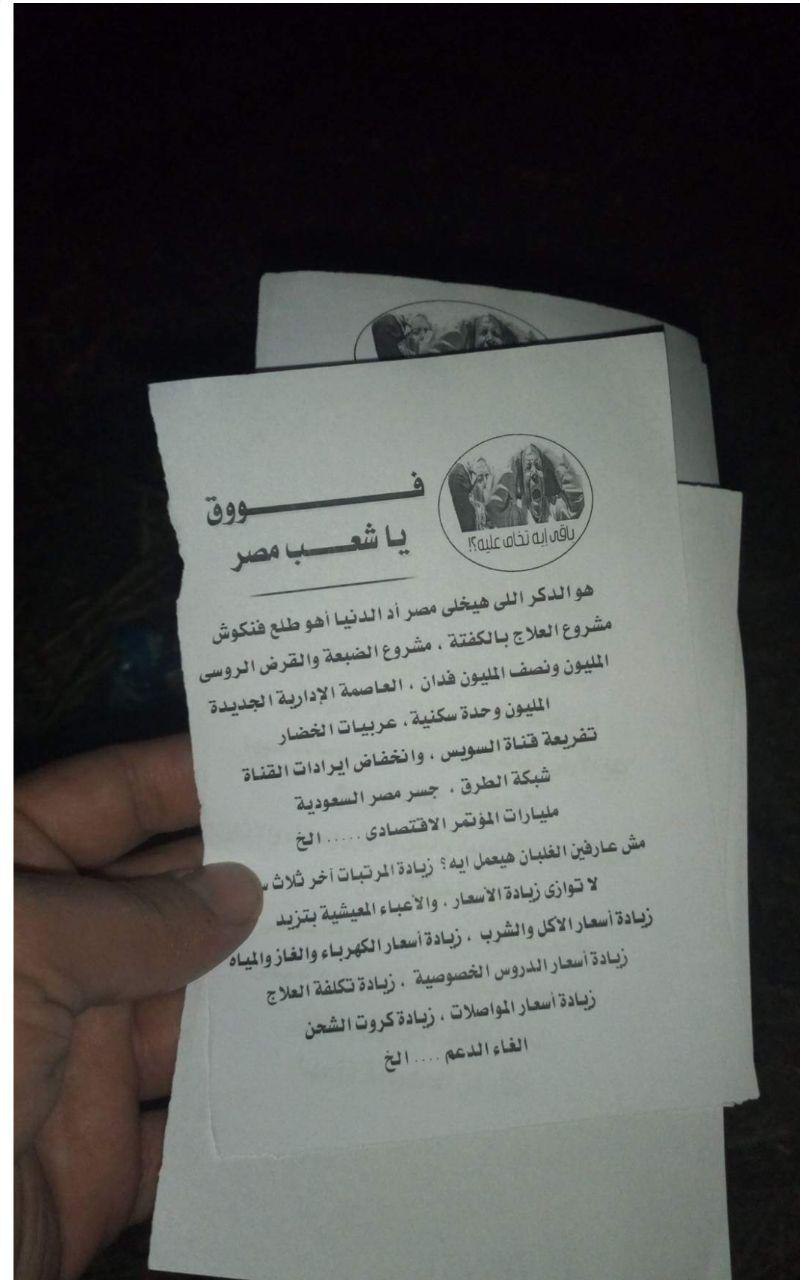 باقى إيه تخاف عليه؟!
فـــــــــــووق
يا شعـــــب مصر
هو الدكر اللى هيخلى مصر أد الدنيا أهو طلع فنكوش
مشروع العلاج بالكفتة ، مشروع الضبعة والقرض الروسى
المليون ونصف المليون فدان ، العاصمة الإدارية الجديدة
المليون وحدة سكنية ، عربيات الخضار
تفريعة قناة السويس ، وانخفاض ايرادات القناة
شبكة الطرق ، جسر مصر السعودية
مليارات المؤتمر الاقتصادى ..... الخ
مش عارفين الغلبان هيعمل ايه؟ زيادة المرتبات آخر ثلاث
لا توازى زيادة الأسعار ، والأعباء المعيشية بتزيد
زيادة أسعار الأكل والشرب ، زيادة أسعار الكهرباء والغاز والمياه
زيادة أسعار الدروس الخصوصية ، زيادة تكلفة العلاج
زيادة أسعار المواصلات ، زيادة كروت الشحن
الغاء الدعم .... الخ